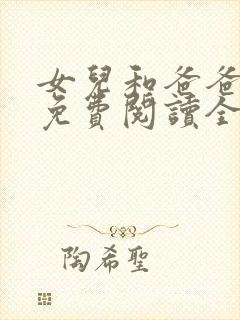 女兒和爸爸
免費閱讀全
陶希聖